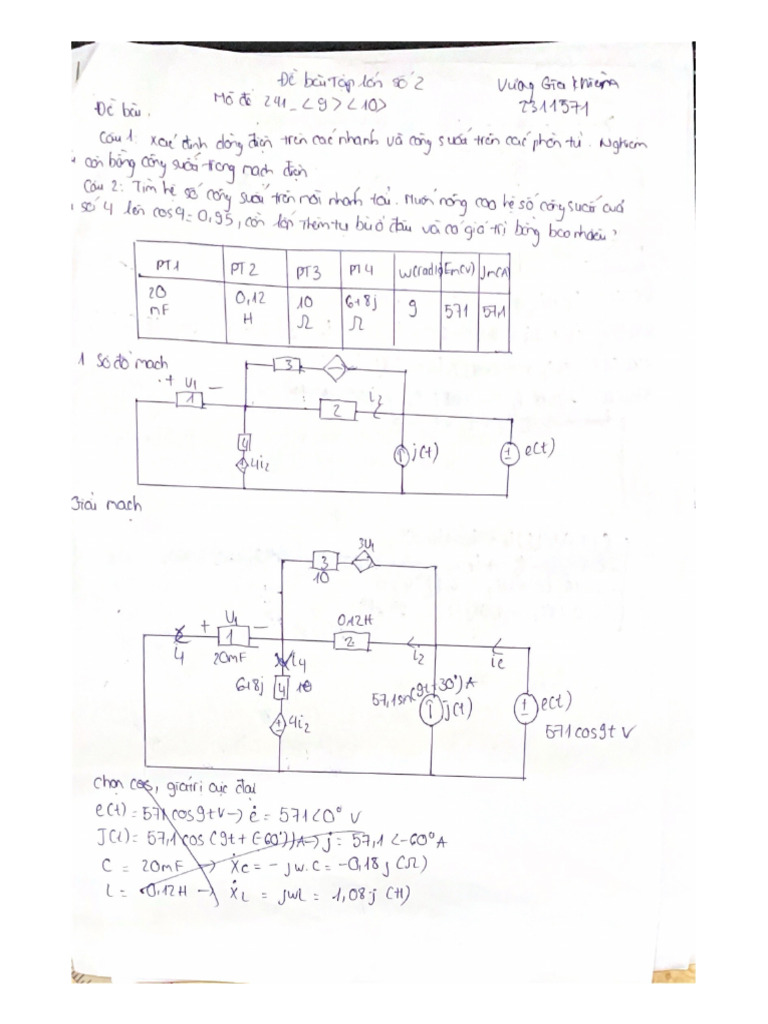 Đề bài Tập lớn số 2
Vương Gia Khiêm
Mã đề 241_<9><10>
2311571
Đề bài.
Câu 1: Xác định dòng điện trên các nhánh và công suất trên các phần tử. Nghiệm
cân bằng công suất trong mạch điện
Câu 2: Tìm hệ số công suất trên mỗi nhánh tải. Muốn nâng cao hệ số công suất của
số 4 lên cosφ = 0,95, cần lắp thêm tụ bù ở đâu và có giá trị bằng bao nhiêu?
PT1 PT2 PT3 PT4 W(rad/s) Em(V) Jm(A)
20 0,12 10 6+8j 9 571 57,1
mF H Ω Ω
1 Sơ đồ mạch
+ U1 -
1 3 2 i2
4 4i2 j(t) e(t)
Giải mạch
3U1
3
10
+ U1 - 0,12H
1 2
20mF i2 ie
i4
6+8j 4 10
57,1sin(9t+30°)A
4i2 j(t) e(t)
571cos9t V
Chọn cos, giá trị cực đại
e(t) = 571cos9t V → ė = 571∠0° V
J(t) = 57,1cos(9t+(-60°))A → j = 57,1∠-60° A
C = 20mF → Ẋc = -jw.C = -0,18j (Ω)
L = 0,12H → ẊL = jwL = 1,08j (H)